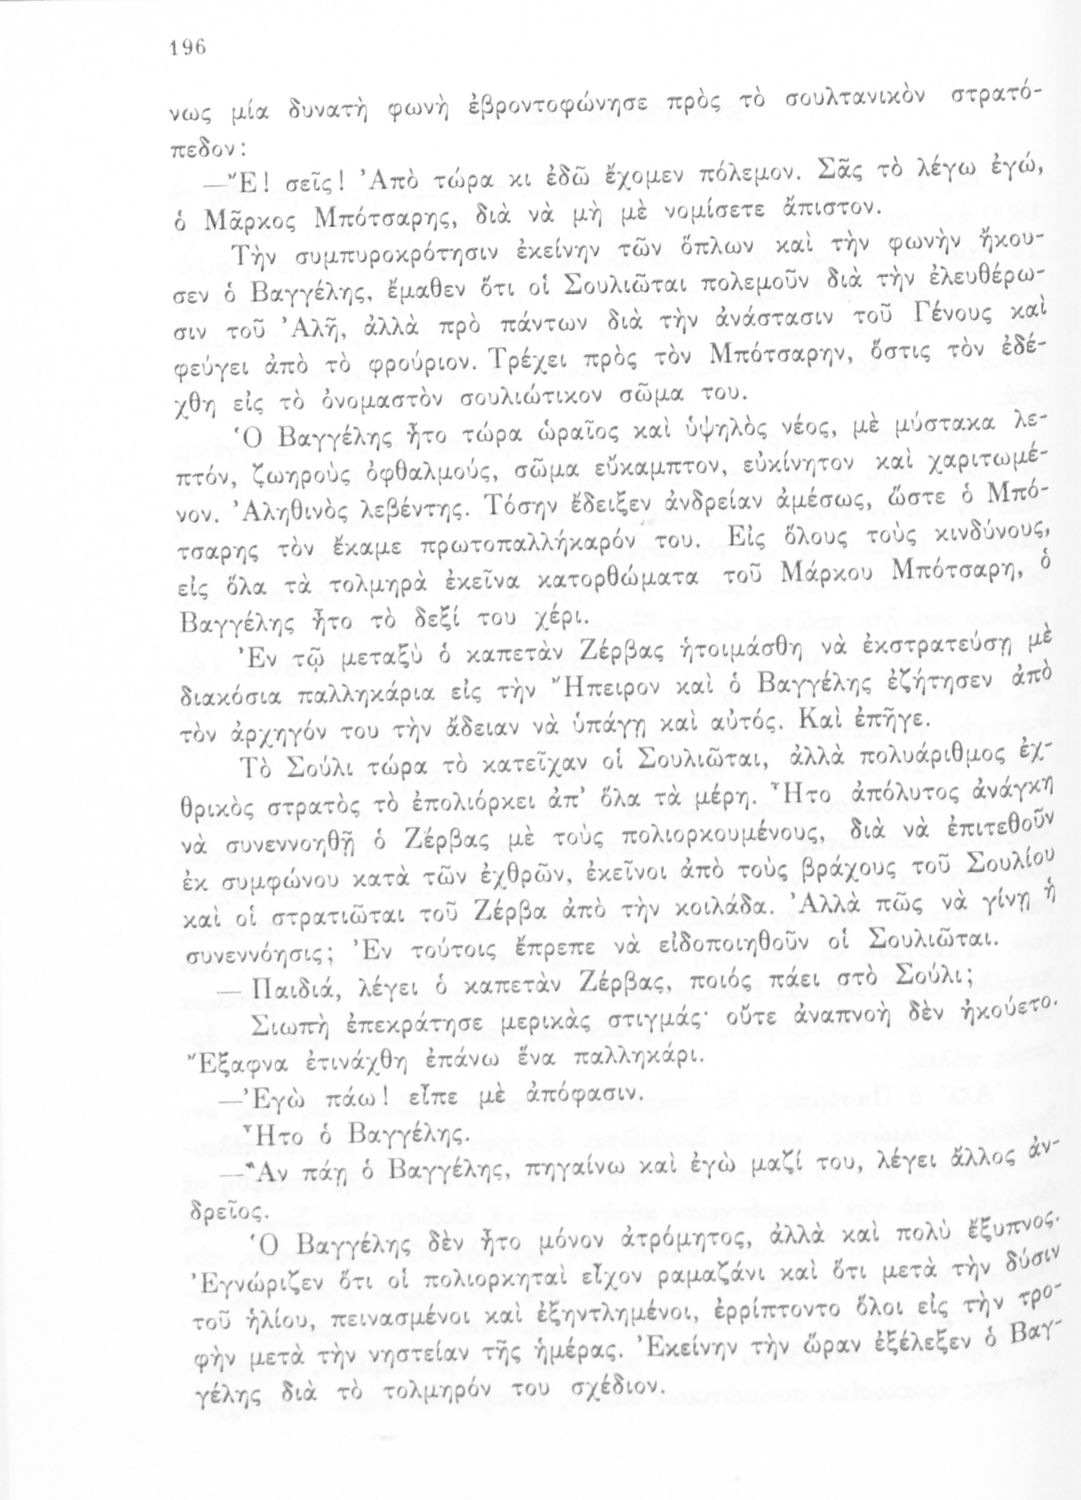 196
νως μία δυνατὴ φωνὴ ἐβροντοφώνησε πρὸς τὸ σουλτανικὸν στρατό-
πεδον:
—"Ε! σεῖς! Ἀπὸ τώρα κι ἐδῶ ἔχομεν πόλεμον. Σᾶς τὸ λέγω ἐγώ,
ὁ Μᾶρκος Μπότσαρης, διὰ νὰ μὴ μὲ νομίσετε ἄπιστον.
Τὴν συμπυροκρότησιν ἐκείνην τῶν ὅπλων καὶ τὴν φωνὴν ἤκου-
σεν ὁ Βαγγέλης, ἔμαθεν ὅτι οἱ Σουλιῶται πολεμοῦν διὰ τὴν ἐλευθέρω-
σιν τοῦ Ἀλῆ, ἀλλὰ πρὸ πάντων διὰ τὴν ἀνάστασιν τοῦ Γένους καὶ
φεύγει ἀπὸ τὸ φρούριον. Τρέχει πρὸς τὸν Μπότσαρην, ὅστις τὸν ἐδέ-
χθη εἰς τὸ ὀνομαστὸν σουλιώτικον σῶμα του.
Ὁ Βαγγέλης ἦτο τώρα ὡραῖος καὶ ὑψηλὸς νέος, μὲ μύστακα λε-
πτόν, ζωηροὺς ὀφθαλμούς, σῶμα εὔκαμπτον, εὐκίνητον καὶ χαριτωμέ-
νον. Ἀληθινὸς λεβέντης. Τόσην ἔδειξεν ἀνδρείαν ἀμέσως, ὥστε ὁ Μπό-
τσαρης τὸν ἔκαμε πρωτοπαλλήκαρόν του. Εἰς ὅλους τοὺς κινδύνους,
εἰς ὅλα τὰ τολμηρὰ ἐκεῖνα κατορθώματα τοῦ Μάρκου Μπότσαρη, ὁ
Βαγγέλης ἦτο τὸ δεξί του χέρι.
Ἐν τῷ μεταξὺ ὁ καπετὰν Ζέρβας ἡτοιμάσθη νὰ ἐκστρατεύσῃ μὲ
διακόσια παλληκάρια εἰς τὴν Ἤπειρον καὶ ὁ Βαγγέλης ἐζήτησεν ἀπὸ
τὸν ἀρχηγόν του τὴν ἄδειαν νὰ ὑπάγῃ καὶ αὐτός. Καὶ ἐπῆγε.
Τὸ Σούλι τώρα τὸ κατεῖχαν οἱ Σουλιῶται, ἀλλὰ πολυάριθμος ἐχ-
θρικὸς στρατὸς τὸ ἐπολιόρκει ἀπ' ὅλα τὰ μέρη. Ἦτο ἀπόλυτος ἀνάγκη
νὰ συνεννοηθῇ ὁ Ζέρβας μὲ τοὺς πολιορκουμένους, διὰ νὰ ἐπιτεθοῦν
ἐκ συμφώνου κατὰ τῶν ἐχθρῶν, ἐκεῖνοι ἀπὸ τοὺς βράχους τοῦ Σουλίου
καὶ οἱ στρατιῶται τοῦ Ζέρβα ἀπὸ τὴν κοιλάδα. Ἀλλὰ πῶς νὰ γίνῃ ἡ
συνεννόησις; Ἐν τούτοις ἔπρεπε νὰ εἰδοποιηθοῦν οἱ Σουλιῶται.
— Παιδιά, λέγει ὁ καπετὰν Ζέρβας, ποιός πάει στὸ Σούλι;
Σιωπὴ ἐπεκράτησε μερικὰς στιγμάς· οὔτε ἀναπνοὴ δὲν ἠκούετο.
Ἔξαφνα ἐτινάχθη ἐπάνω ἕνα παλληκάρι.
—Ἐγὼ πάω! εἶπε μὲ ἀπόφασιν.
Ἦτο ὁ Βαγγέλης.
—Ἂν πάῃ ὁ Βαγγέλης, πηγαίνω καὶ ἐγὼ μαζί του, λέγει ἄλλος ἀν-
δρεῖος.
Ὁ Βαγγέλης δὲν ἦτο μόνον ἀτρόμητος, ἀλλὰ καὶ πολὺ ἔξυπνος.
Ἐγνώριζεν ὅτι οἱ πολιορκηταὶ εἶχον ραμαζάνι καὶ ὅτι μετὰ τὴν δύσιν
τοῦ ἡλίου, πεινασμένοι καὶ ἐξηντλημένοι, ἐρρίπτοντο ὅλοι εἰς τὴν τρο-
φὴν μετὰ τὴν νηστείαν τῆς ἡμέρας. Ἐκείνην τὴν ὥραν ἐξέλεξεν ὁ Βαγ-
γέλης διὰ τὸ τολμηρόν του σχέδιον.